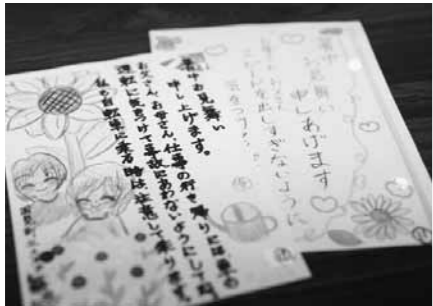 暑中お見舞い
申し上げます。
お父さん、お母さん、仕事の行き帰りには車の
運転に気をつけて事故にあわないようにしてね
私も自転車に乗る時は注意して乗ります。
暑中
お見舞い
申しあげます
出しすぎないように
気をつけ